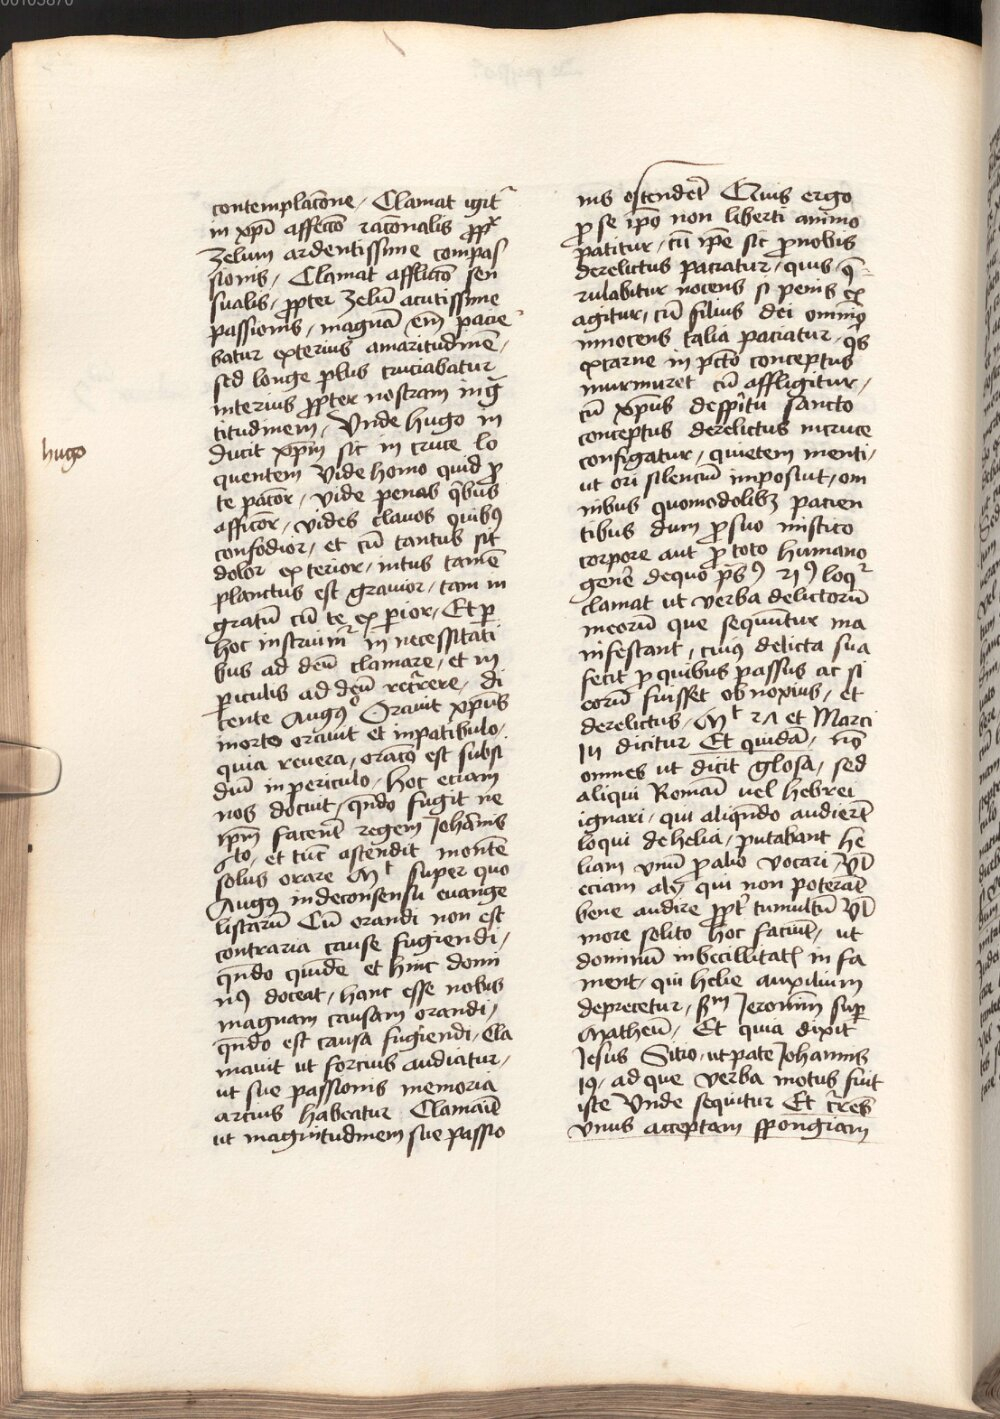 00103876
contemplacōne / Clamat igit᷑
in xpī affeccō racōnalis ꝓpt᷑
zelum ardentissime compas
sionis / Clamat afflictō sen
sualis / ꝓpter zelū acutissime
passionis / magnā em̄ pacie
batur exterius amaritudinē /
sed longe plus cruciabatur
interius ꝓpter nostram ing̅
titudinem / Vnde hugo in
ducit xp̄m sic in cruce lo
quentem Vide homo quid ꝓ
te pacior / vide penas q̄bus
afficior / vides clavos quibꝰ
confodior / et cū tantus sit
dolor exterior / intus tamē
planctus est gravior / tam in
gratū cū te experior / Et ꝑ
hoc instruim᷑ in necessitati
bus ad deū clamare / et in
ꝑiculis ad deū rec̄rere / di
cente Augꝰ Oravit xp̄us
morte oravit et in patibulo /
quia revera / oracō est subsi
diū in periculo / hoc eciam
nos docuit / qn̄do fugit ne
ip̄m facerēt regem Johannis
6to / et tūc ascendit montē
solus orare Mt super quo
Augꝰ in de consensu euange
listarū Cū orandi non est
contraria cause fugiendi /
qn̄do quidē et hinc domi
nꝰ doceat / hanc esse nobis
magnam causam orandi /
qn̄do est causa fugiendi / Cla
mavit ut forcius audiatur /
ut sue passionis memoria
arcius habeatur Clamavit
ut magnitudinem sue passio
hugo
nis ostenderet Quis ergo
ꝓ se ip̄o non liberti animo
patitur / cū ip̄e sic ꝓ nobis
derelictus paciatur / quis q̄
rulabitur nocens si penis ex
agitur / cū filius dei omnīo
innocens talia paciatur / q̄s
carne in pctō conceptus
murmuret cū affligitur /
cū xp̄us de spīritu sancto
conceptus derelictus in cruce
configatur / quietem menti /
ut ori silenciū imposuit / om
nibus quomodolibꝫ pacien
tibus dum ꝓ suo mistico
corpore aut ꝓ toto humano
genere de quo ps 21 loq᷑
clamat ut verba delictorū
meorū que sequūntur ma
nifestant / cuiꝰ delicta sua
fecit ꝓ quibus passus ac si
eorū fuisset obnoxius / et
derelictus / Mt 27 et Marci
15 dicitur Et quidā / nō
omnes ut dicit glosa / sed
aliqui Romani uel hebrei
ignari / qui aliqn̄do audierēt
loqui de helia / putabant he
liam vnū ꝓ alio vocari / vl̄
eciam alij qui non poterāt
bene audire ꝓpt᷑ tumultū vl̄
more solito hoc faciūt / ut
dominū inbecillitatis in fa
ment / qui helie auxilium
deprecetur / scdm Jeronimū sup
Matheū / Et quia dixit
Jesus Sitio / ut patet Johannis
19 / ad que verba motus fuit
iste Vnde sequitur Et c̄rens
vnus acceptam spongiam